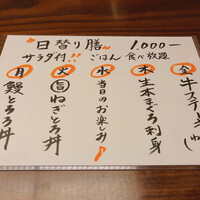 "日替り膳" 1,000-
サラダ付!! ごはん食べ放題
月 鰻とろろ丼
火 旨ねぎとろ丼
水 当日のお楽しみ♪
木 生本まぐろ刺身
金 牛ステーキ